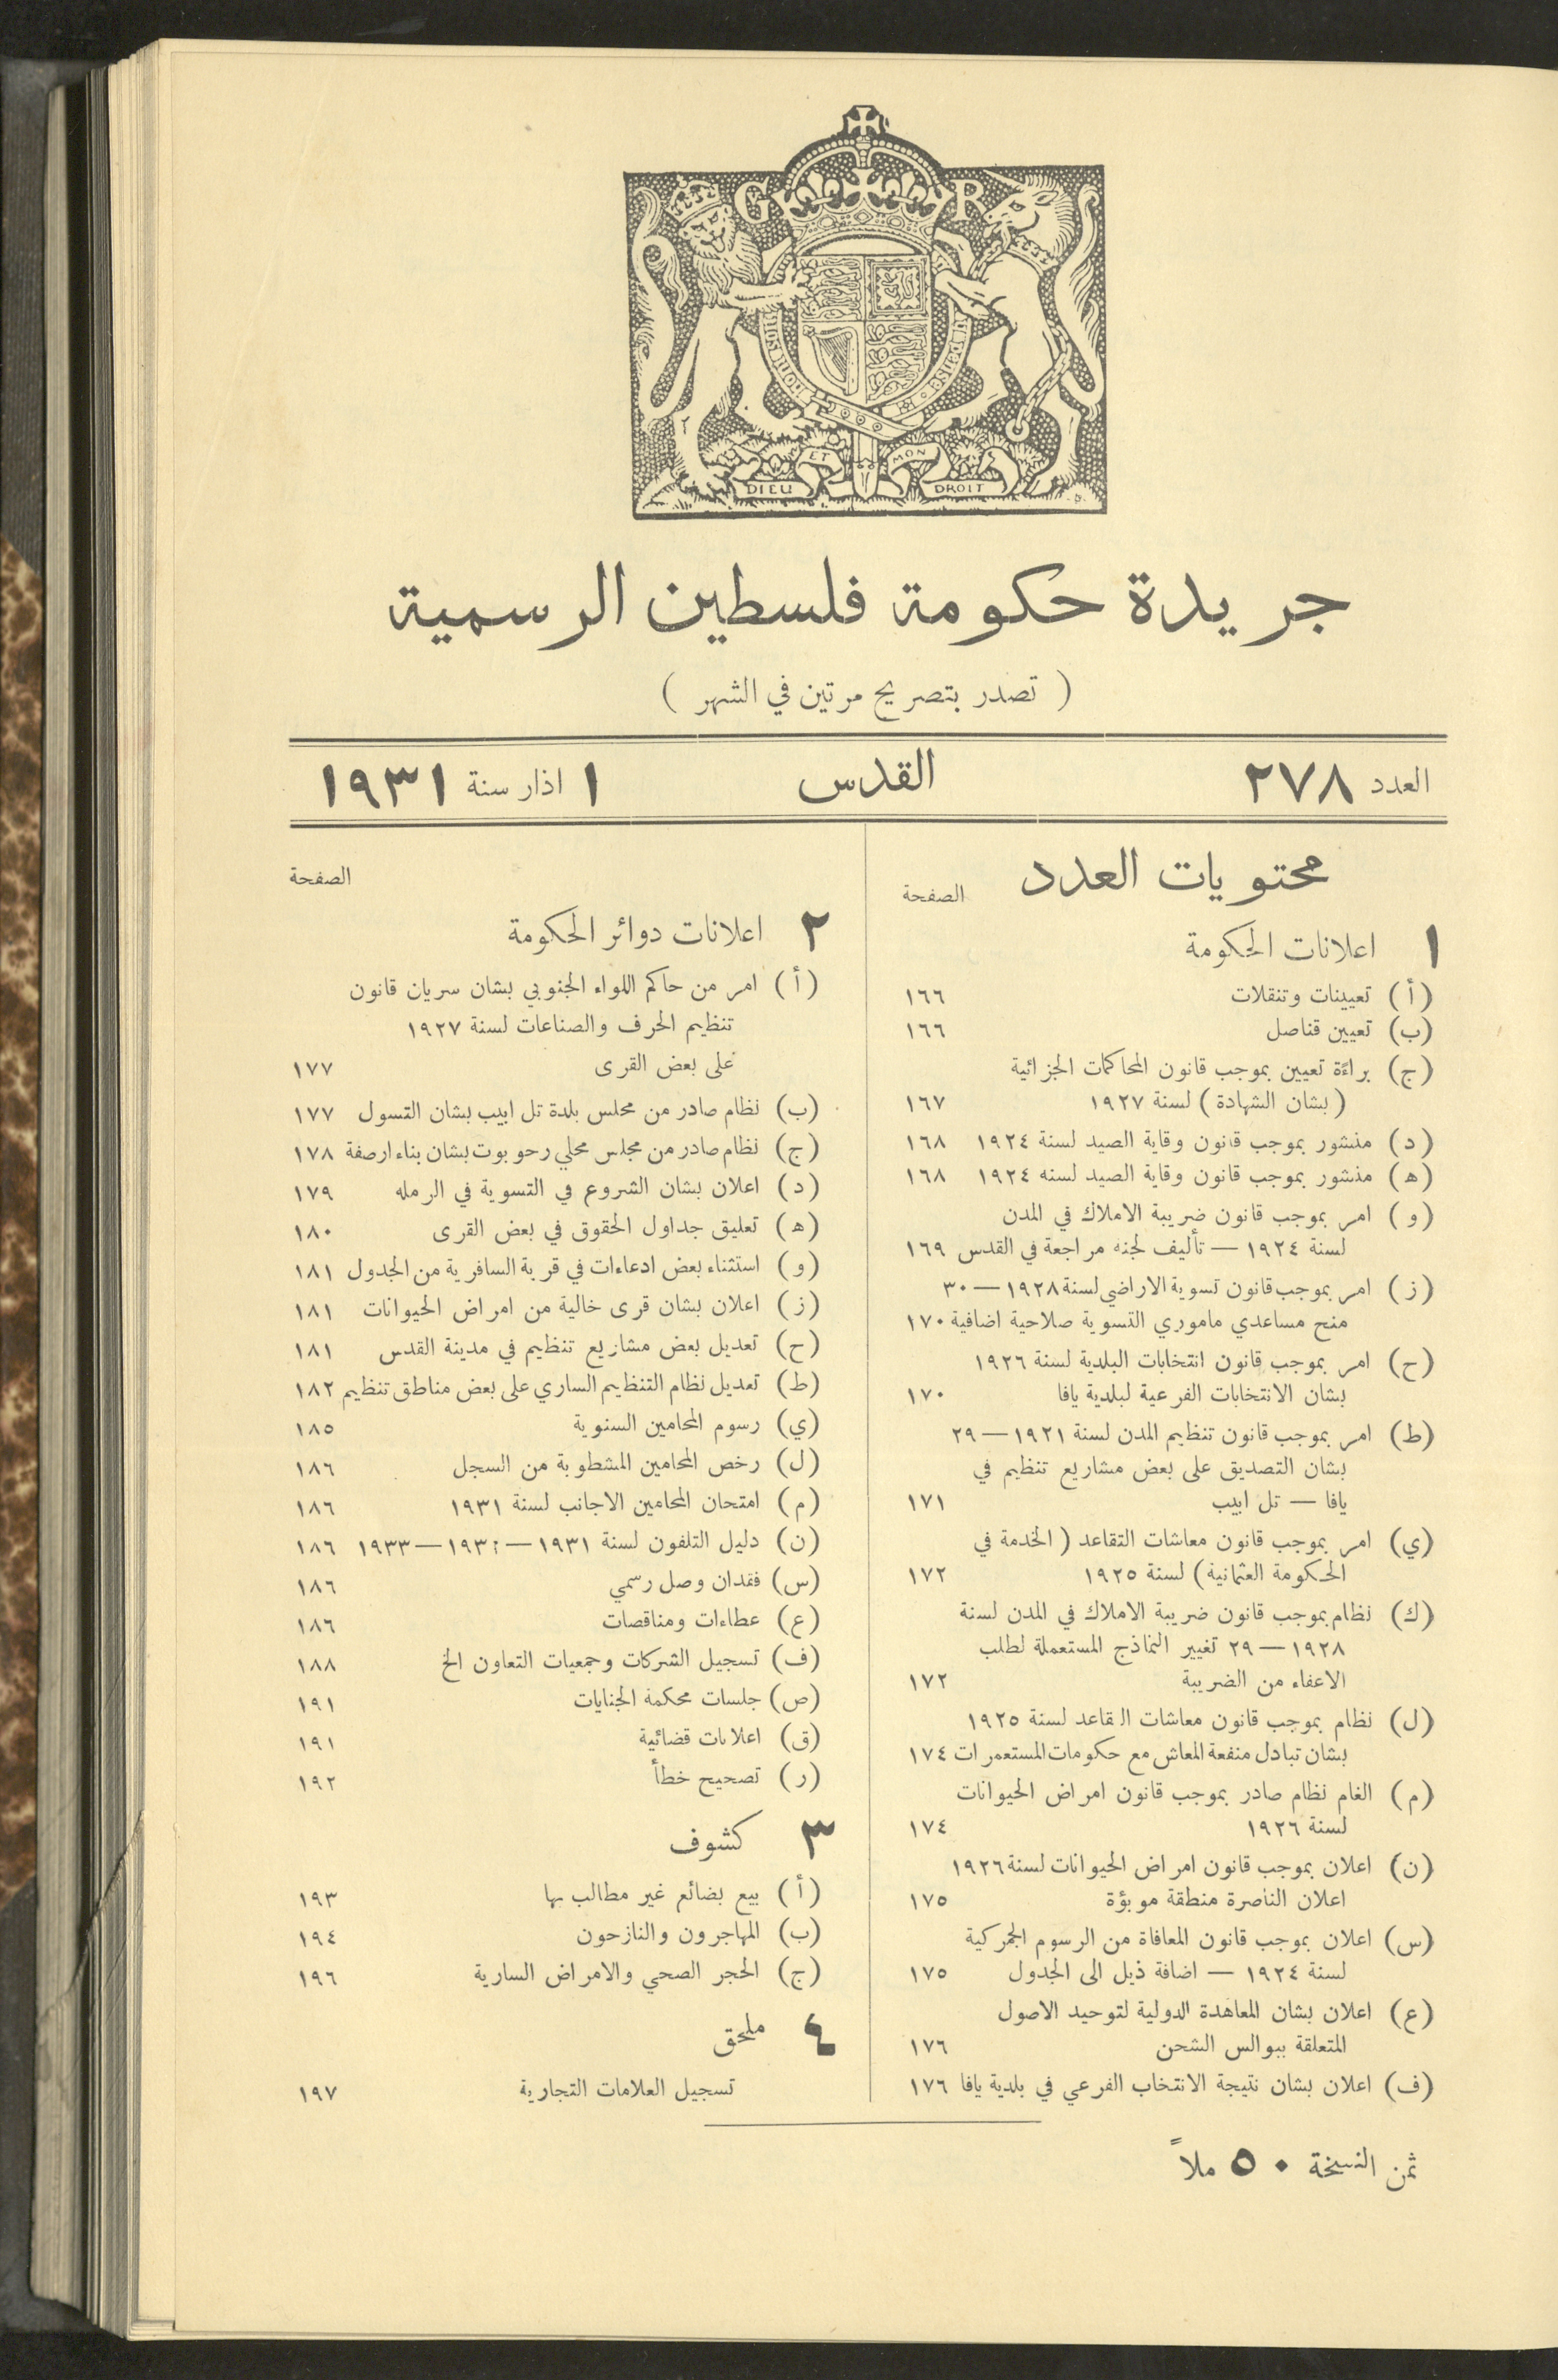 G R
HONI SOIT
DIEU ET MON DROIT
جريدة حكومة فلسطين الرسمية
( تصدر بتصريح مرتين في الشهر )
العدد ٢٧٨ القدس ١ اذار سنة ١٩٣١
محتويات العدد
الصفحة
١ اعلانات الحكومة
(أ) تعيينات وتنقلات ١٦٦
(ب) تعيين قناصل ١٦٦
(ج) براءة تعيين بموجب قانون المحاكمات الجزائية
(بشان الشهادة) لسنة ١٩٢٧ ١٦٧
(د) منشور بموجب قانون وقاية الصيد لسنة ١٩٢٤ ١٦٨
(ه) منشور بموجب قانون وقاية الصيد لسنه ١٩٢٤ ١٦٨
(و) امر بموجب قانون ضريبة الاملاك في المدن
لسنة ١٩٢٤ — تأليف لجنه مراجعة في القدس ١٦٩
(ز) امر بموجب قانون تسوية الاراضي لسنة ١٩٢٨—٣٠
منح مساعدي ماموري التسوية صلاحية اضافية ١٧٠
(ح) امر بموجب قانون انتخابات البلدية لسنة ١٩٢٦
بشان الانتخابات الفرعية لبلدية يافا ١٧٠
(ط) امر بموجب قانون تنظيم المدن لسنة ١٩٢١—٢٩
بشان التصديق على بعض مشاريع تنظيم في
يافا — تل ابيب ١٧١
(ي) امر بموجب قانون معاشات التقاعد (الخدمة في
الحكومة العثمانية) لسنة ١٩٢٥ ١٧٢
(ك) نظام بموجب قانون ضريبة الاملاك في المدن لسنة
١٩٢٨—٢٩ تغيير النماذج المستعملة لطلب
الاعفاء من الضريبة ١٧٢
(ل) نظام بموجب قانون معاشات القاعد لسنة ١٩٢٥
بشان تبادل منفعة المعاش مع حكومات المستعمرات ١٧٤
(م) الغام نظام صادر بموجب قانون امراض الحيوانات
لسنة ١٩٢٦ ١٧٤
(ن) اعلان بموجب قانون امراض الحيوانات لسنة ١٩٢٦
اعلان الناصرة منطقة موبؤة ١٧٥
(س) اعلان بموجب قانون المعافاة من الرسوم الجمركية
لسنة ١٩٢٤ — اضافة ذيل الى الجدول ١٧٥
(ع) اعلان بشان المعاهدة الدولية لتوحيد الاصول
المتعلقة ببوالس الشحن ١٧٦
(ف) اعلان بشان نتيجة الانتخاب الفرعي في بلدية يافا ١٧٦
الصفحة
٢ اعلانات دوائر الحكومة
(أ) امر من حاكم اللواء الجنوبي بشان سريان قانون
تنظيم الحرف والصناعات لسنة ١٩٢٧
على بعض القرى ١٧٧
(ب) نظام صادر من مجلس بلدة تل ابيب بشان التسول ١٧٧
(ج) نظام صادر من مجلس محلي رحوبوت بشان بناء ارصفة ١٧٨
(د) اعلان بشان الشروع في التسوية في الرمله ١٧٩
(ه) تعليق جداول الحقوق في بعض القرى ١٨٠
(و) استثناء بعض ادعاءات في قرية السافرية من الجدول ١٨١
(ز) اعلان بشان قرى خالية من امراض الحيوانات ١٨١
(ح) تعديل بعض مشاريع تنظيم في مدينة القدس ١٨١
(ط) تعديل نظام التنظيم الساري على بعض مناطق تنظيم ١٨٢
(ي) رسوم المحامين السنوية ١٨٥
(ل) رخص المحامين المشطوبة من السجل ١٨٦
(م) امتحان المحامين الاجانب لسنة ١٩٣١ ١٨٦
(ن) دليل التلفون لسنة ١٩٣١— —١٩٣٣ ١٨٦
(س) فقدان وصل رسمي ١٨٦
(ع) عطاءات ومناقصات ١٨٦
(ف) تسجيل الشركات وجمعيات التعاون الخ ١٨٨
(ص) جلسات محكمة الجنايات ١٩١
(ق) اعلانات قضائية ١٩١
(ر) تصحيح خطأ ١٩٢
٣ كشوف
(أ) بيع بضائع غير مطالب بها ١٩٣
(ب) المهاجرون والنازحون ١٩٤
(ج) الحجر الصحي والامراض السارية ١٩٦
٤ ملحق
تسجيل العلامات التجارية ١٩٧
ثمن النسخة ٥٠ ملاً